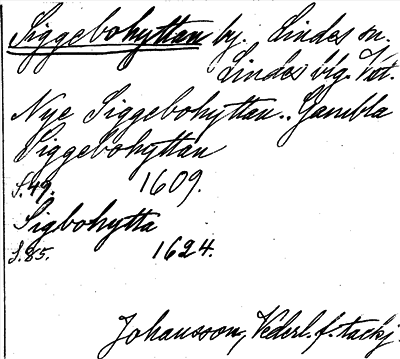 Siggebohyttan by. Lindes sn.
Lindes blg. Vstl.
Nye Siggebohyttan.. Gambla
Siggebohyttan
S.49. 1609.
Sigbohytta
S.85. 1624.
Johansson, Vederl. f. tackj.